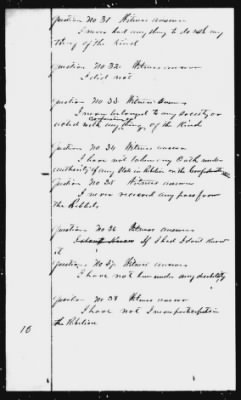 Question No 31 Witness answers
I never had any thing to do with any
thing of the kind
Question No 32 Witness answers
I did not
Question No 33 Witness answers
I never belonged to any Society or
Community
acted with any thing of the Kind
Question No 34 Witness answers
I have not taken any Oath under
authority of any State in Rebellion or the Confederate
Question No 35 Witness answers
I never received any pass from
the Rebbels
Question No 36 Witness answers
If I had I dont Know
it
Question No 37 Witness answers
I have not been under any disability
Question No 38 Witness answers
I have not I never participated in
the Rebelion
10